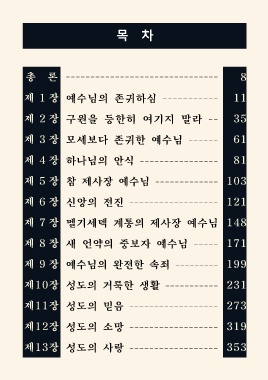 목 차
총 론 8
제 1 장 예수님의 존귀하심 11
제 2 장 구원을 등한히 여기지 말라 35
제 3 장 모세보다 존귀한 예수님 61
제 4 장 하나님의 안식 81
제 5 장 참 제사장 예수님 103
제 6 장 신앙의 전진 121
제 7 장 멜기세덱 계통의 제사장 예수님 148
제 8 장 새 언약의 중보자 예수님 171
제 9 장 예수님의 완전한 속죄 199
제10장 성도의 거룩한 생활 231
제11장 성도의 믿음 273
제12장 성도의 소망 319
제13장 성도의 사랑 353